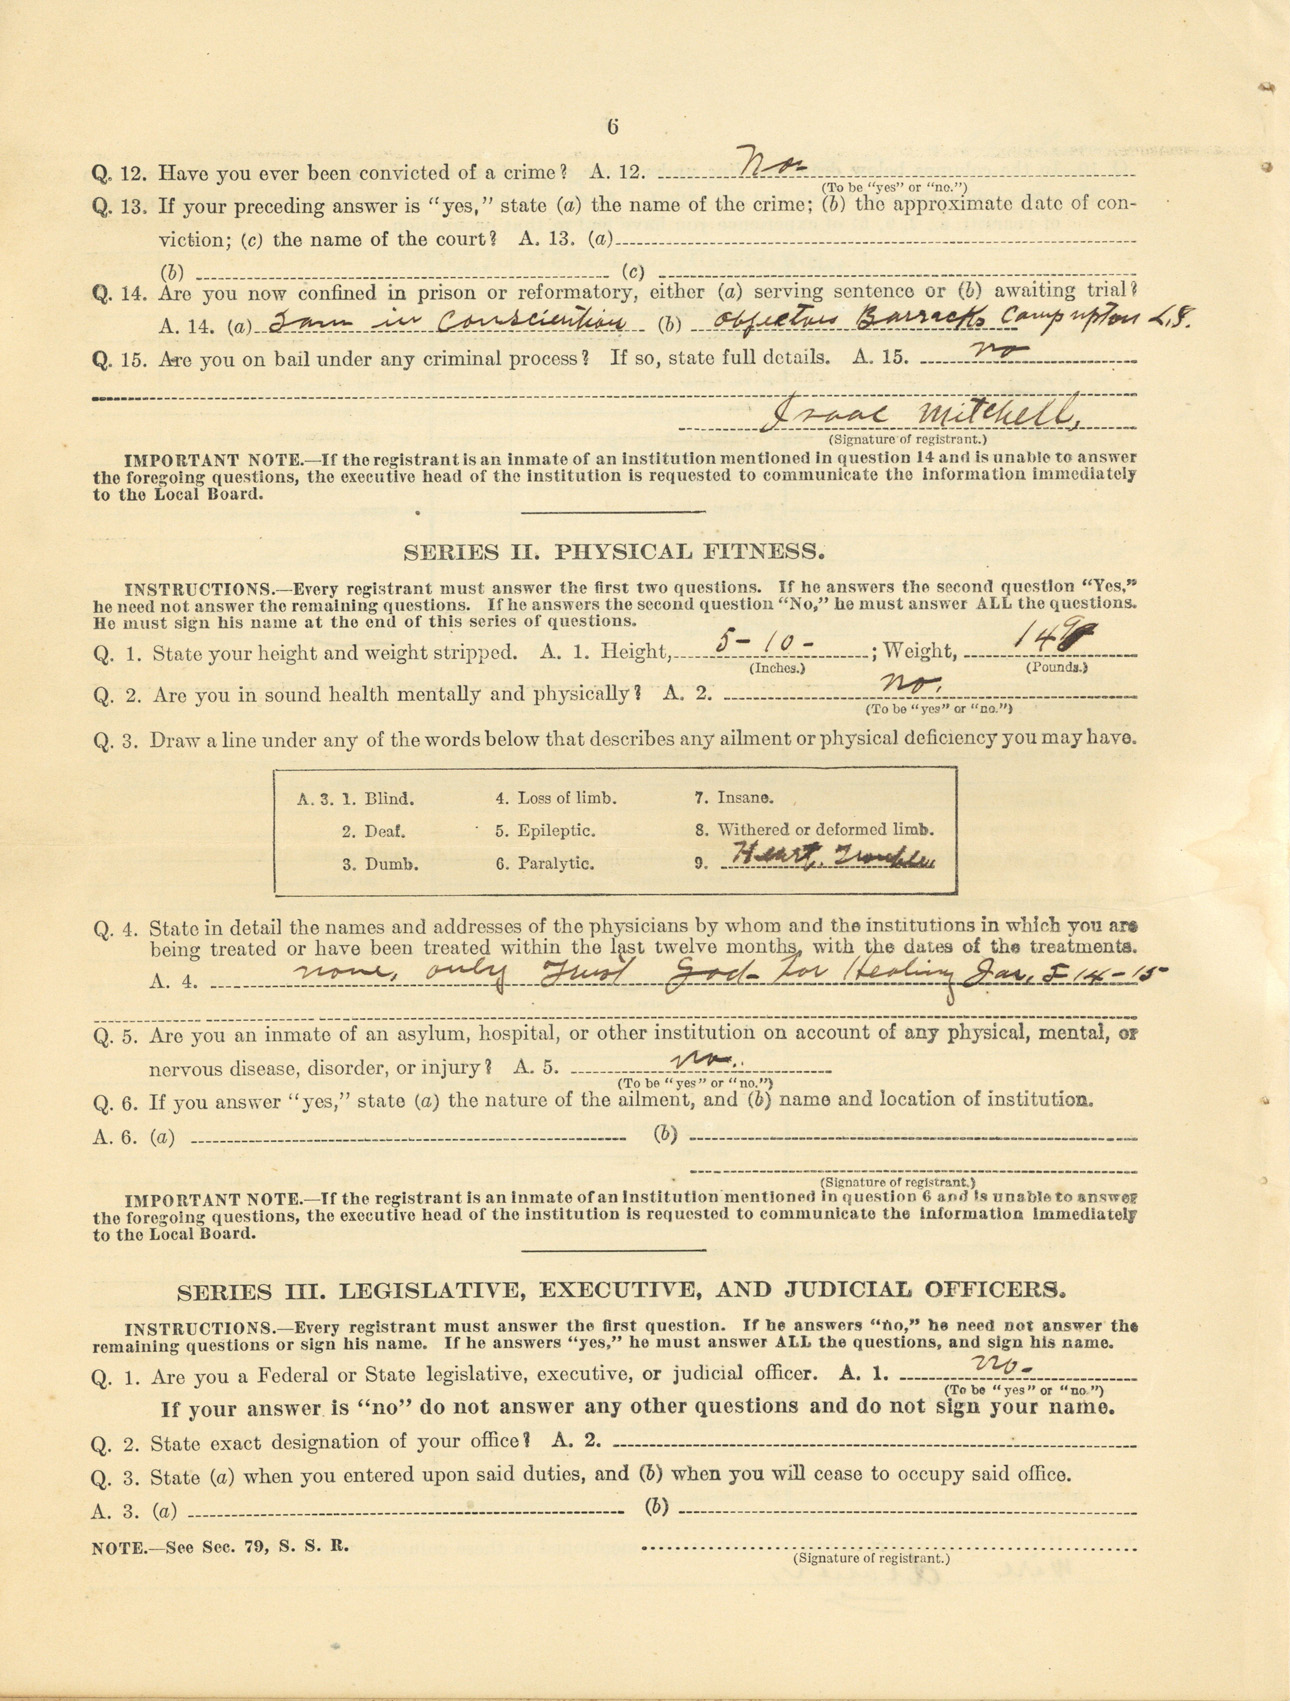 6
Q. 12. Have you ever been convicted of a crime? A. 12. No
(To be "yes" or "no.")
Q. 13. If your preceding answer is "yes," state (a) the name of the crime; (b) the approximate date of con-
viction; (c) the name of the court? A. 13. (a)
(b) (c)
Q. 14. Are you now confined in prison or reformatory, either (a) serving sentence or (b) awaiting trial?
A. 14. (a) I am in Conscientiou (b) objectors Barracks Camp upton L.I.
Q. 15. Are you on bail under any criminal process? If so, state full details. A. 15. no
Isaac Mitchell,
(Signature of registrant.)
IMPORTANT NOTE.—If the registrant is an inmate of an institution mentioned in question 14 and is unable to answer
the foregoing questions, the executive head of the institution is requested to communicate the information immediately
to the Local Board.
SERIES II. PHYSICAL FITNESS.
INSTRUCTIONS.—Every registrant must answer the first two questions. If he answers the second question "Yes,"
he need not answer the remaining questions. If he answers the second question "No," he must answer ALL the questions.
He must sign his name at the end of this series of questions.
Q. 1. State your height and weight stripped. A. 1. Height, 5-10- ; Weight,
(Inches.) (Pounds.)
Q. 2. Are you in sound health mentally and physically? A. 2. no.
(To be "yes" or "no.")
Q. 3. Draw a line under any of the words below that describes any ailment or physical deficiency you may have.
A. 3. 1. Blind. 4. Loss of limb. 7. Insane.
2. Deaf. 5. Epileptic. 8. Withered or deformed limb.
3. Dumb. 6. Paralytic. 9. Heart. Troubles
Q. 4. State in detail the names and addresses of the physicians by whom and the institutions in which you are
being treated or have been treated within the last twelve months, with the dates of the treatments.
A. 4. none, only Trust God for Healing 14-15-
Q. 5. Are you an inmate of an asylum, hospital, or other institution on account of any physical, mental, or
nervous disease, disorder, or injury? A. 5. no.
(To be "yes" or "no.")
Q. 6. If you answer "yes," state (a) the nature of the ailment, and (b) name and location of institution.
A. 6. (a) (b)
(Signature of registrant.)
IMPORTANT NOTE.—If the registrant is an inmate of an institution mentioned in question 6 and is unable to answer
the foregoing questions, the executive head of the institution is requested to communicate the information immediately
to the Local Board.
SERIES III. LEGISLATIVE, EXECUTIVE, AND JUDICIAL OFFICERS.
INSTRUCTIONS.—Every registrant must answer the first question. If he answers "no," he need not answer the
remaining questions or sign his name. If he answers "yes," he must answer ALL the questions, and sign his name.
Q. 1. Are you a Federal or State legislative, executive, or judicial officer. A. 1. no-
(To be "yes" or "no.")
If your answer is "no" do not answer any other questions and do not sign your name.
Q. 2. State exact designation of your office? A. 2.
Q. 3. State (a) when you entered upon said duties, and (b) when you will cease to occupy said office.
A. 3. (a) (b)
NOTE.—See Sec. 79, S. S. R.
(Signature of registrant.)